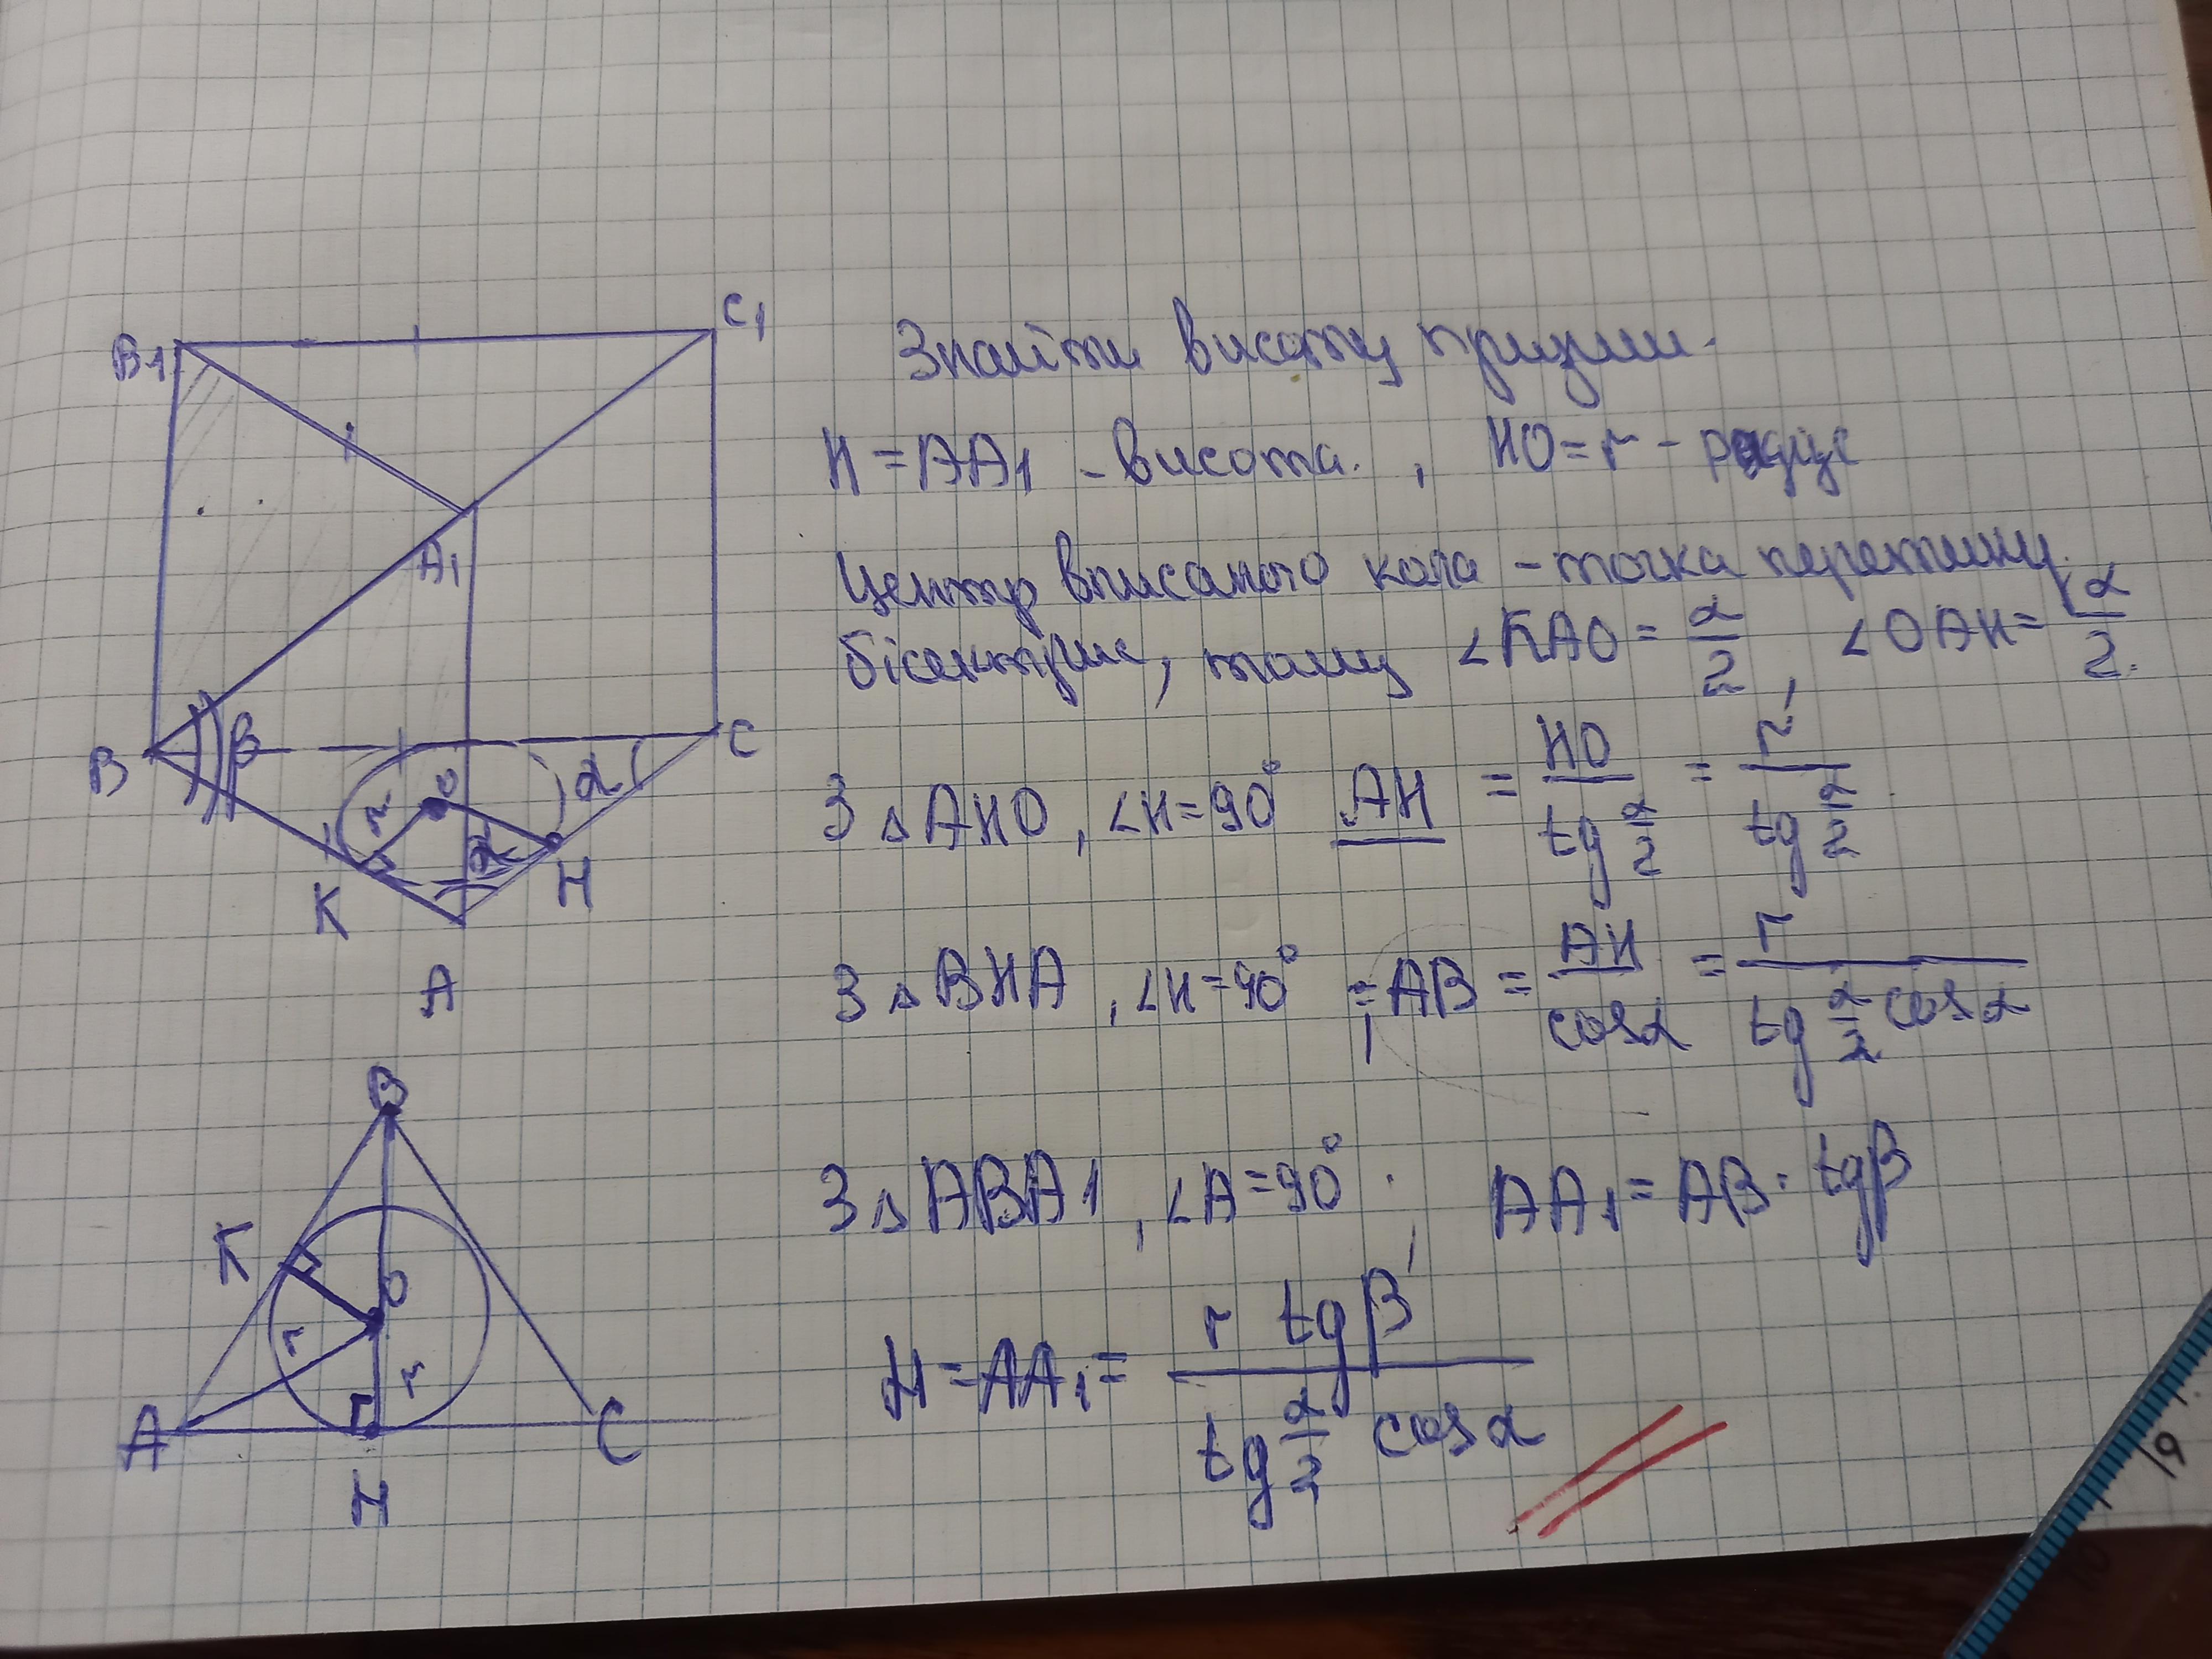 B1
C1
A1
B
β
C
α
r
O
α
K
H
A
Знайти висоту призми.
H = AA1 – висота. , HO = r – радіус
Центр вписаного кола – точка перетину
бісектрис, тому ∠KAO = α/2 , ∠OAH = α/2.
З △AHO, ∠H=90° AH = HO/tg α/2 = r/tg α/2
З △BHA, ∠H=90° ; AB = AH/cosα = r/(tg α/2 cosα)
З △ABA1, ∠A=90° ; AA1 = AB · tgβ
H = AA1 = r tgβ/(tg α/2 cosα)
B
K
O
r
r
A
C
H
19